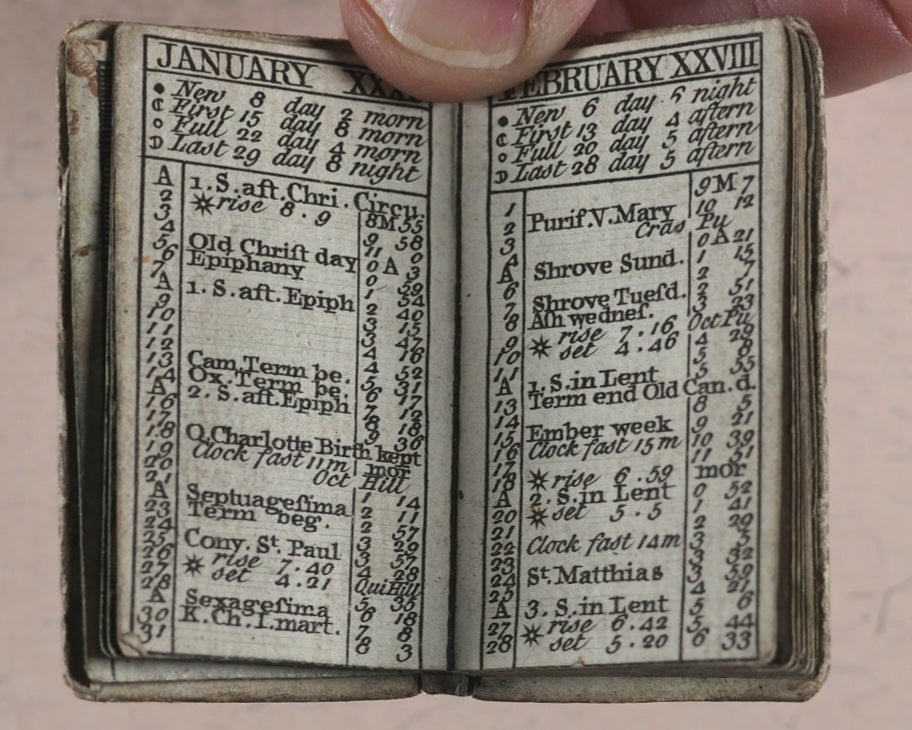 JANUARY XXXI
● New 8 day 2 morn
☾ First 15 day 8 morn
○ Full 22 day 4 morn
☽ Last 29 day 8 night
A 1. S. aft. Chri. Circu.
2 ☀rise 8 . 9 8M55
3 9 58
4 11 0
5 Old Chriſt day 0 A 3
6 Epiphany 0 59
7 1 54
A 1. S. aft. Epiph 2 40
9 3 15
10 3 47
11 4 16
12 4 52
13 Cam. Term be. 5 31
14 Ox. Term be. 6 17
A 2. S. aft. Epiph 7 12
16 8 18
17 9 36
18 Q. Charlotte Birth kept
19 Clock faſt 11m mor
20 Oct Hill
21 1 14
A Septuageſima 2 11
23 Term beg. 2 57
24 3 29
25 Conv. St. Paul 3 57
26 ☀ rise 7 . 40 4 28
27 set 4 . 21 Qui Hill
28 5 35
A Sexageſima 6 18
30 K. Ch. I. mart. 7 8
31 8 3
FEBRUARY XXVIII
● New 6 day 5 night
☾ First 13 day 4 aftern
○ Full 20 day 5 aftern
☽ Last 28 day 5 aftern
1 9M 7
2 Purif V. Mary 10 12
3 Cras Pu
4 0 A 21
A Shrove Sund. 1 15
6 2 7
7 Shrove Tueſd. 2 51
8 Aſh wedneſ. 3 23
9 ☀ rise 7 . 16 Oct Pu
10 set 4 . 46 4 29
11 5 8
A 1. S. in Lent 5 55
13 Term end Old Can. d.
14 8 5
15 Ember week 9 21
16 Clock faſt 15m 10 39
17 11 51
18 ☀ rise 6 . 59 mor
A 2. S. in Lent 0 52
20 ☀ set 5 . 5 1 41
21 2 29
22 Clock faſt 14m 3 5
23 3 32
24 St. Matthias 3 59
25 4 21
A 3. S. in Lent 5 6
27 ☀ rise 6 . 42 5 44
28 set 5 . 20 6 33